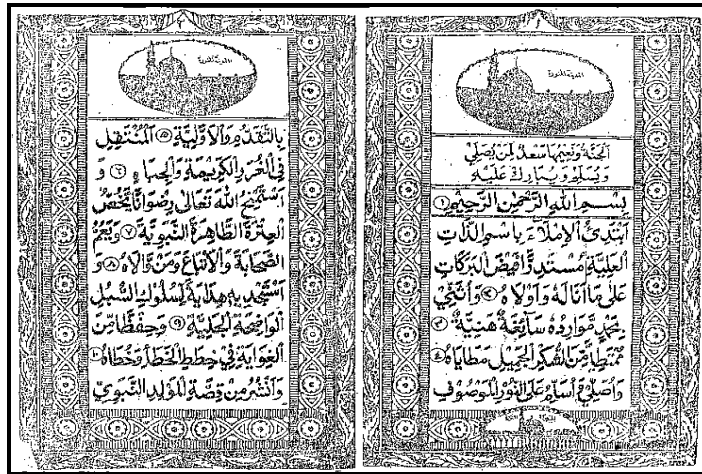 المدينة المنورة
الجنة ونعيمها سعد لمن يصلي
ويسلم ويبارك عليه
بسم الله الرحمن الرحيم ١
أبتدئ الإملاء باسم الذات
العلية مستدرا فيض البركات
على ما أناله وأولاه ٢ وأثني
بحمد موارده سائغة هنية ٣
ممتطيا من الشكر الجميل مطاياه ٤
وأصلي وأسلم على النور الموصوف
المدينة المنورة
بالتقدم والأولية ٥ المنتقل
في الغرر الكريمة والجباه ٦ و
أستمنح الله تعالى رضوانا يخص
العترة الطاهرة النبوية ٧ ويعم
الصحابة والأتباع ومن والاه ٨ و
أستجديه هداية لسلوك السبل
الواضحة الجلية ٩ وحفظا من
الغواية في خطط الخطأ وخطاه ١٠
وأنشر من قصة المولد النبوي